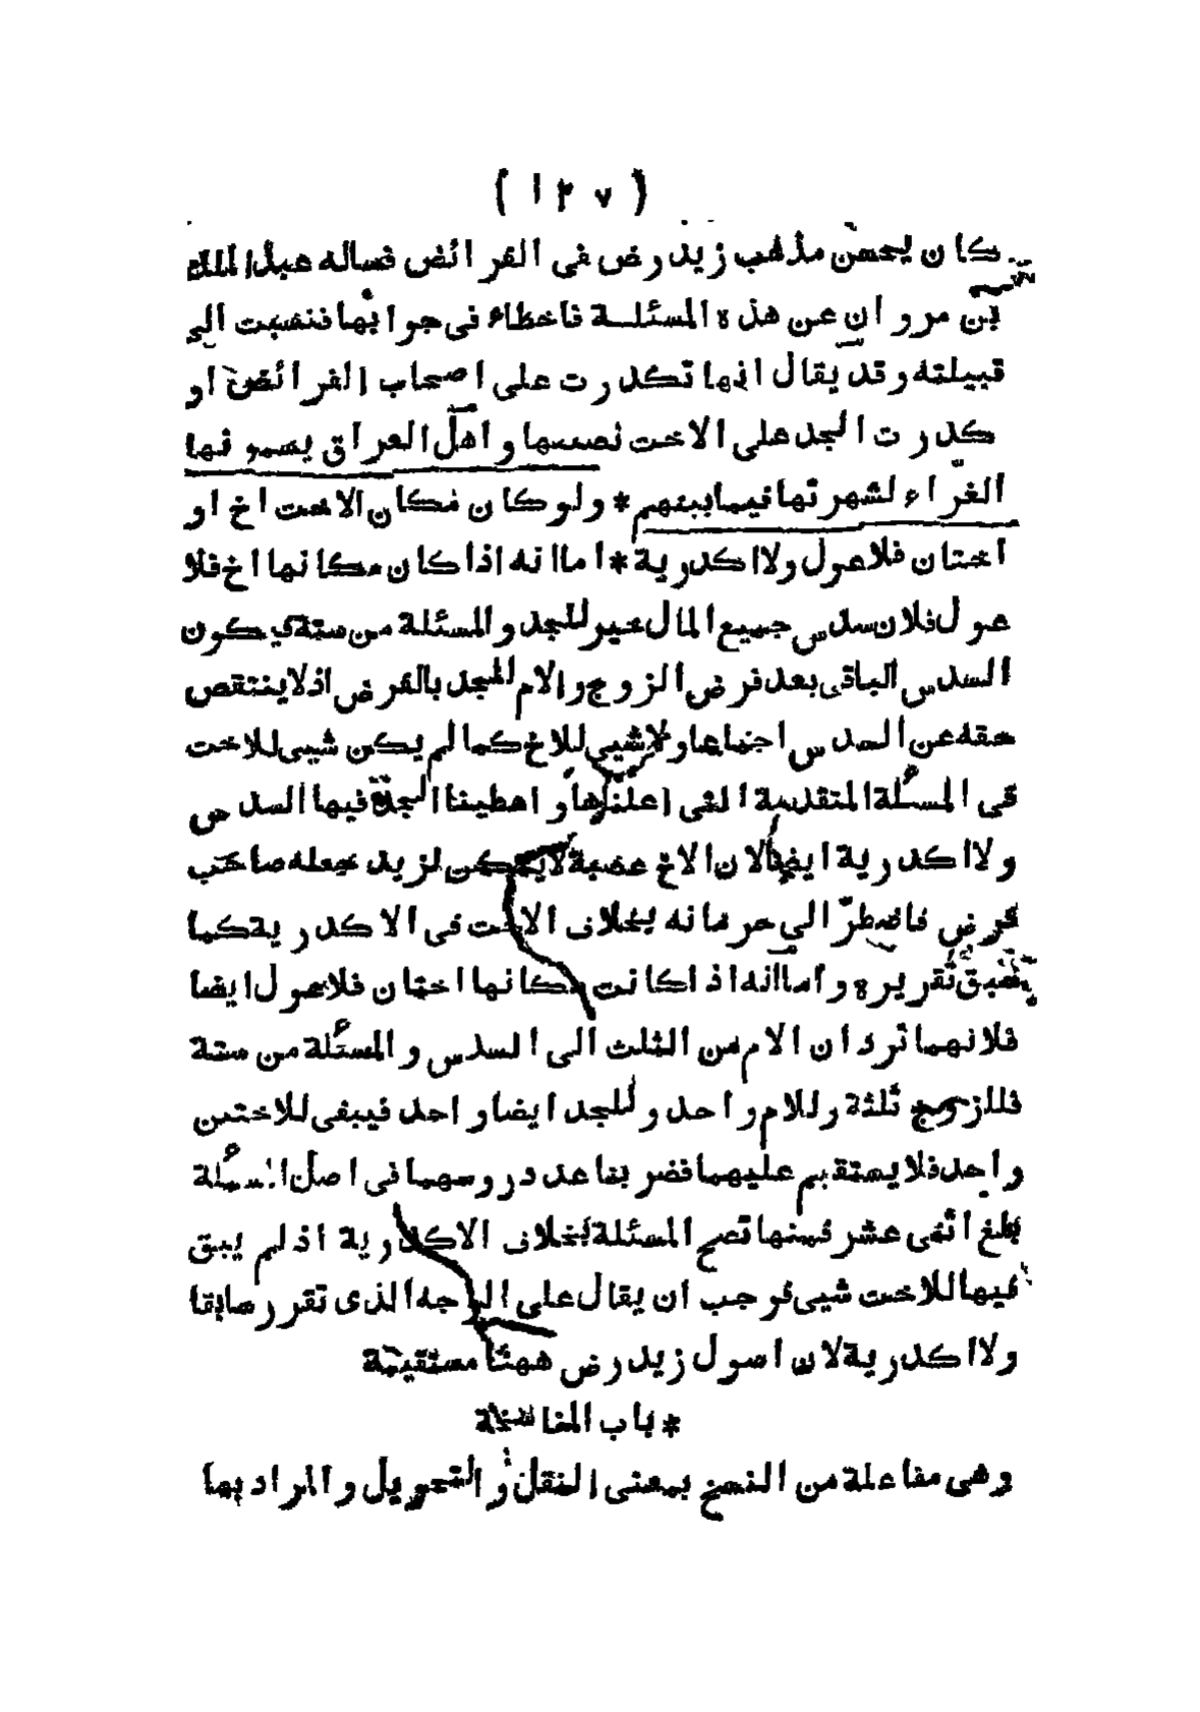 ( ١٢٧ )
كان يحسن مذهب زيد رض فى الفرائض فساله عبد الملك
بن مروان عن هذه المسئلة فاخطاء فى جوابها فنسبت الى
قبيلته وقد يقال انها تكدرت على اصحاب الفرائض او
كدرت الجد على الاخت نصيبها واهل العراق يسمونها
الغرّاء لشهرتها فيما بينهم * ولو كان مكان الاخت اخ او
اختان فلا عول ولا اكدرية * اما انه اذا كان مكانها اخ فلا
عول فلان سدس جميع المال خير للجد والمسئلة من ستة يكون
السدس الباقى بعد فرض الزوج والام للجد بالفرض اذ لا ينتقص
حقه عن السدس اجماعا ولا شيى للاخ كما لم يكن شيى للاخت
فى المسئلة المتقدمة التى اعلناها واعطينا الجدة فيها السدس
ولا اكدرية ايضا لان الاخ عصبة لا يمكن لزيد جعله صاحب
فرض فاضطرّ الى حرمانه بخلاف الاخت فى الاكدرية كما
سبق تقريره واما انه اذا كانت مكانها اختان فلا عول ايضا
فلانهما تردان الام من الثلث الى السدس والمسئلة من ستة
فللزوج ثلثة وللام واحد وللجد ايضا واحد فيبقى للاختين
واحد فلا يستقيم عليهما فضربنا عدد روسهما فى اصل المسئلة
بلغ اثنى عشر فمنها تصح المسئلة بخلاف الاكدرية اذ لم يبق
فيها للاخت شيى فوجب ان يقال على الوجه الذى تقرر سابقا
ولا اكدرية لان اصول زيد رض ههنا مستقيمة
* باب المناسخة
وهى مفاعلة من النسخ بمعنى النقل والتحويل والمراد بها